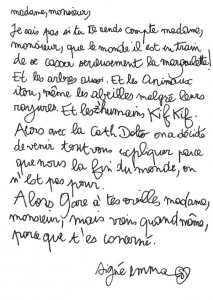 madame, monsieur,
Je sais pas si tu te rends compte madame,
monsieur, que le monde il est en train
de se casser sérieusement la margoulette !
Et les arbres aussi. Et les Animaux
itou, même les abeilles malgré leurs
rayures. Et les zhumains, Kif Kif.
Alors avec la Cath Dolto on a décidé
de venir tout vous expliquer parce
que nous la fin du monde, on
n'est pas pour.
Alors Gare à tes oreilles madame,
monsieur, mais viens quand même,
parce que t'es concerné.
signé emma